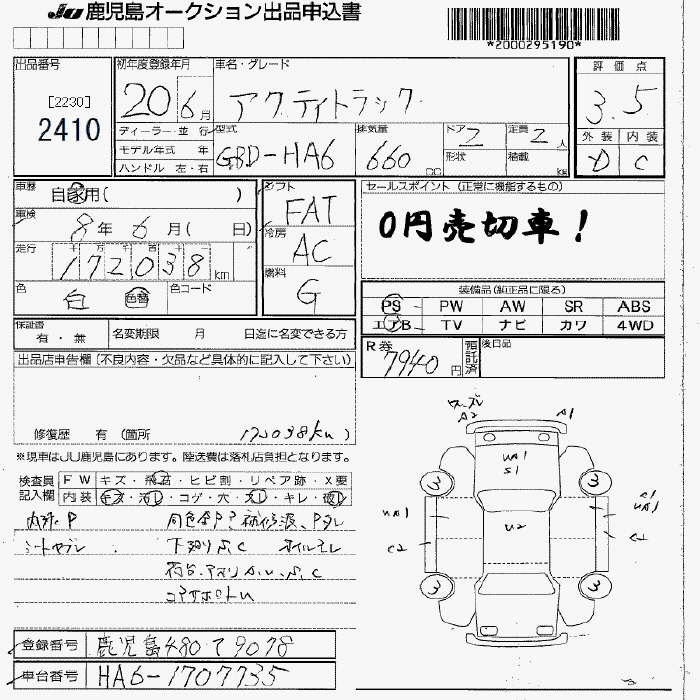 JU 鹿児島オークション出品申込書
*2000295190*
出品番号
[2230]
2410
初年度登録年月
20 6月
車名・グレード
アクティトラック
評価点
3.5
外装 内装
D C
ディーラー・並行
モデル年式 年
ハンドル 左・右
型式
GBD-HA6
排気量
660 CC
ドア 2
形状
定員 2人
積載 kg
車歴
自家用( )
車検
8年 6月( 日)
走行
172038 km
色
白 色替
色コード
シフト
FAT
冷房
AC
燃料
G
セールスポイント (正常に機能するもの)
0円売切車!
装備品(純正品に限る)
PS PW AW SR ABS
エアB TV ナビ カワ 4WD
保証書
有・無
名変期限 月 日迄に名変できる方
R券
7940円
預託済
後日品
出品店申告欄(不良内容・欠品など具体的に記入して下さい)
修復歴 有 (箇所 172038km)
※現車はJU鹿児島にあります。陸送費は落札店負担となります。
検査員記入欄
FW キズ・飛石・ヒビ割・リペア跡・X要
内装 キズ・汚レ・コゲ・穴・スレ・キレ・破レ
シートヤブレ
下廻りS,C
A2
A1
UA1
S1
U2
3
3
3
3
UA1
C2
A1
UA1
C2
登録番号 鹿児島480て9078
車台番号 HA6-1707735